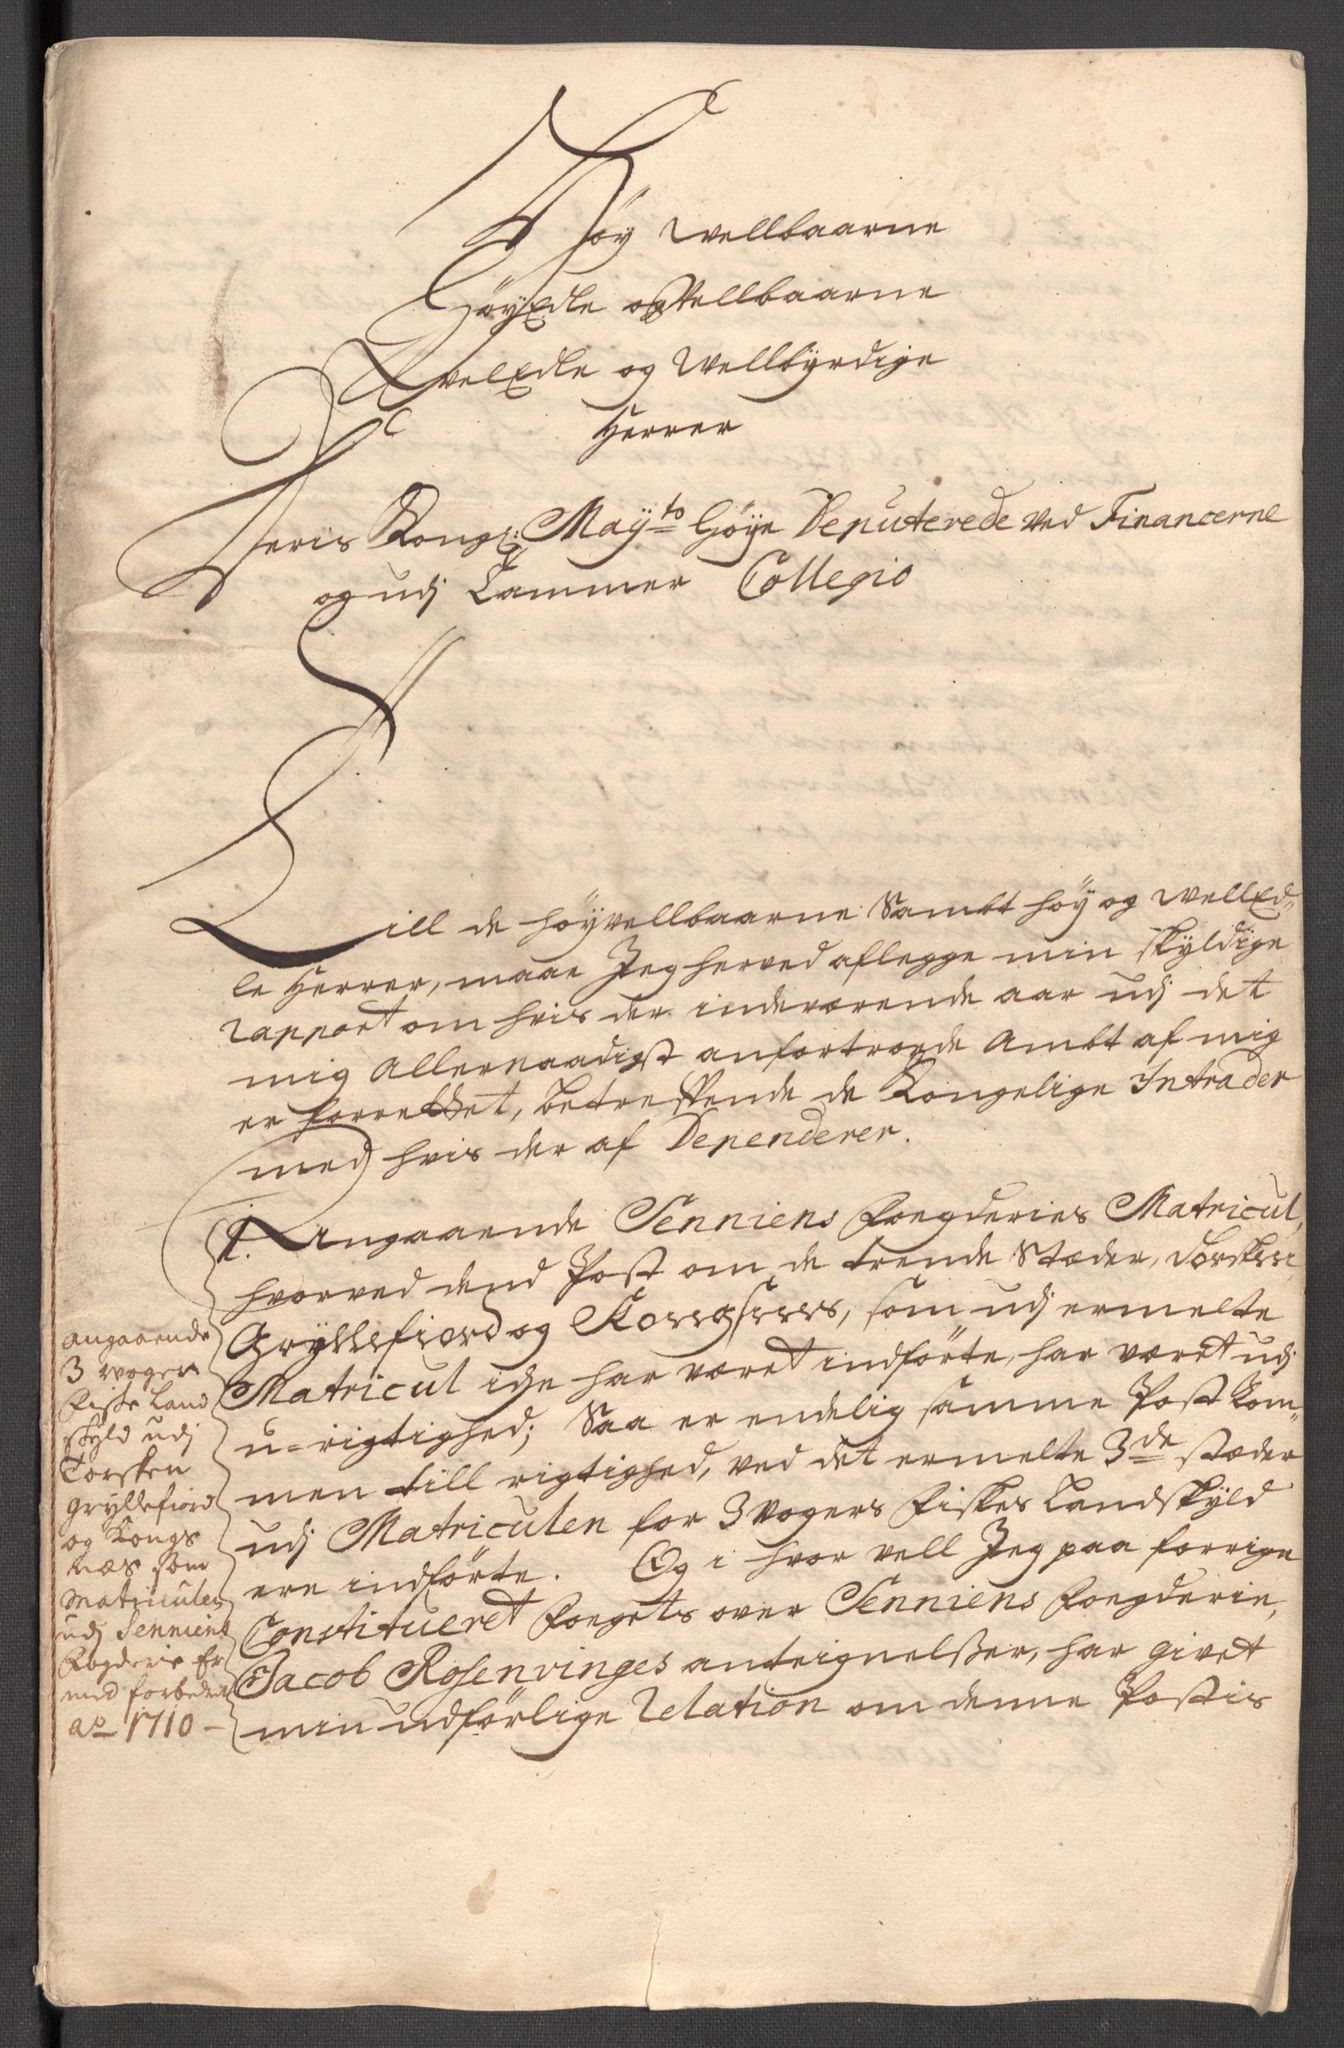 Høy Wellbaarne
HøyEdle og Wellbaarne
WelEdle og Wellbyrdige
Herrer
Deris Kongl: Mayts høye Deputerede ved Financerne
og udj Cammer Collegio
Till de høyvellbaarne Sambt høy og WellEd-
le Herrer, maae Jeg herved aflegge min skyldige
rapport om hvis der indeværende aar udj det
mig Allernaadigst anfortroede Ambt af mig
er forrettet, betreffende de Kongelige Intrader
med hvis der af Dependerer.
1. Angaaende Senniens Foegderies Matricul,
hvorved dend Post om de trende Stæder, Torsken,
Gryllefiord og Kongsnes, som udj ermelte
Matricul icke har været indførte, har været udj
u-rigtighed; Saa er endelig samme Post kom-
men till rigtighed, ved det ermelte 3de stæder
udj Matriculen for 3 Vogers Fiskes Landskyld
ere indførte. Og i hvor vell Jeg paa forrige
Constitueret Foegets over Senniens Foegderie,
Jacob Rosenvinges anteignelsser, har givet
min udførlige Relation om denne Postis
angaaende
3 woger
Fiske Land
skyld udj
Torsken
Gryllefiord
og Kongs
næs som
Matriculen
udj Senniens
Fogderie Er
med forbedret
ao 1710